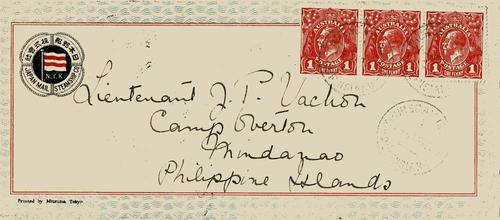 日本郵船株式會社
N.Y.K.
JAPAN MAIL STEAMSHIP CO
AUSTRALIA AUSTRALIA AUSTRALIA
POSTAGE POSTAGE POSTAGE
1 1 1 1 1 1
ONE PENNY ONE PENNY ONE PENNY
Lieutenant J. P. Vachon
Camp Overton
Mindanao
Philippine Islands
Printed by Mitsumura Tokyo